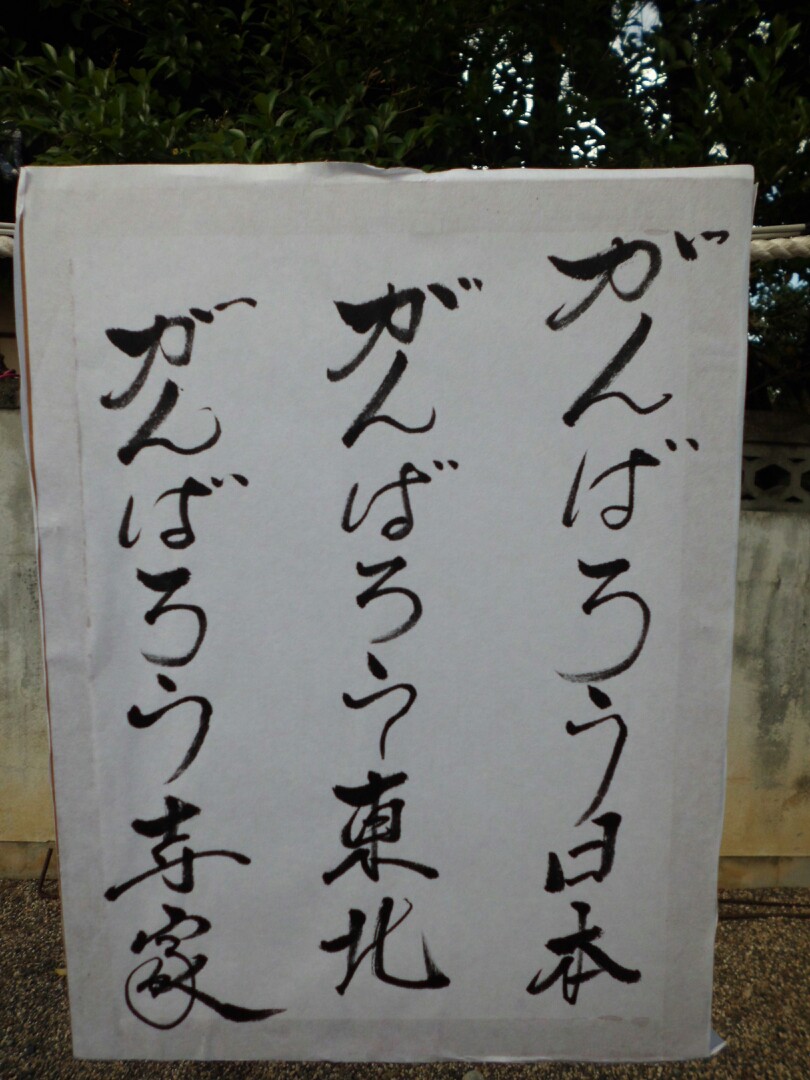 がんばろう日本
がんばろう東北
がんばろう寺家